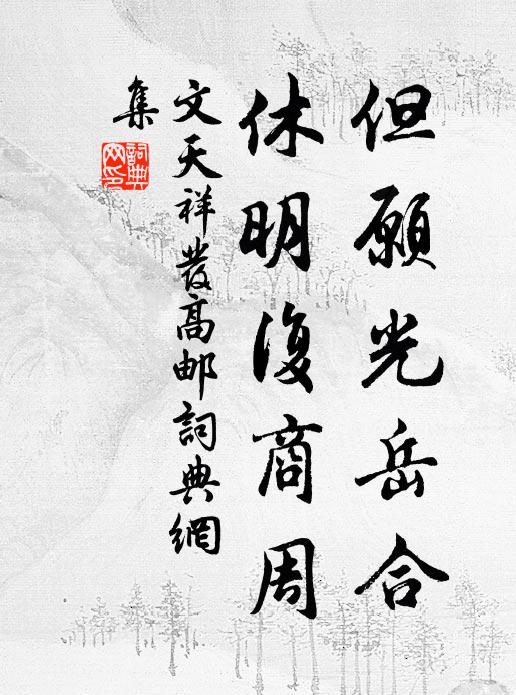 但願光岳合
休明復商周
文天祥發高邮詞典網
集
詞典
网印